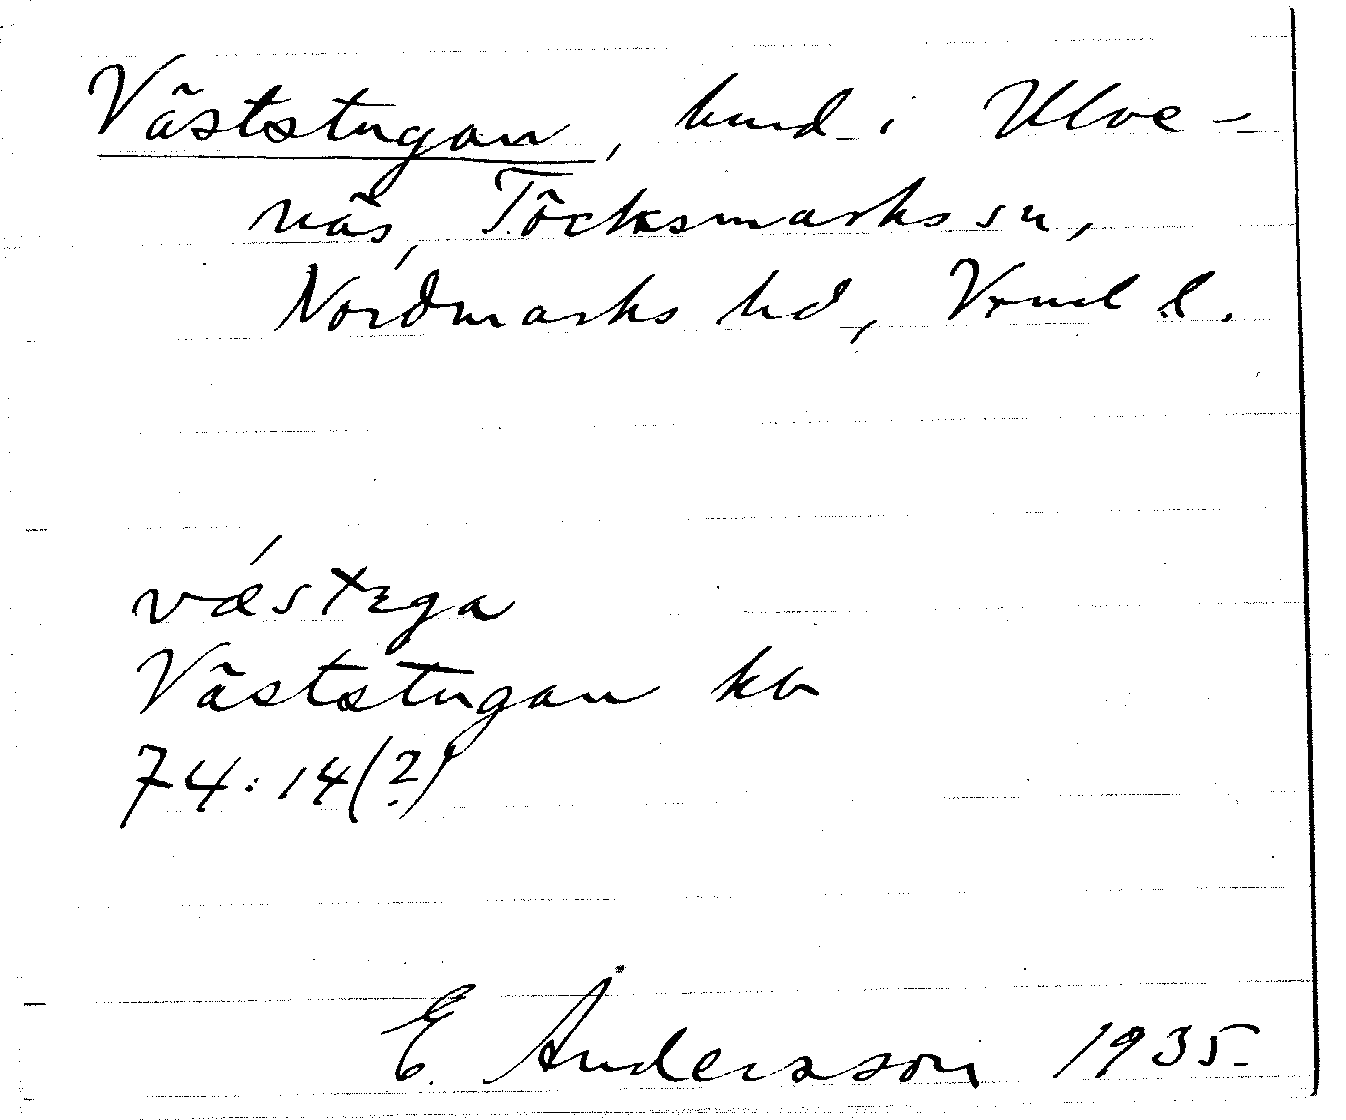 Väststugan, hmd i Uloe-
näs, Töcksmarks sn,
Nordmarks hd, Vrml l.
væ´stega
Väststugan kb
74:14(?)
E. Andersson 1935